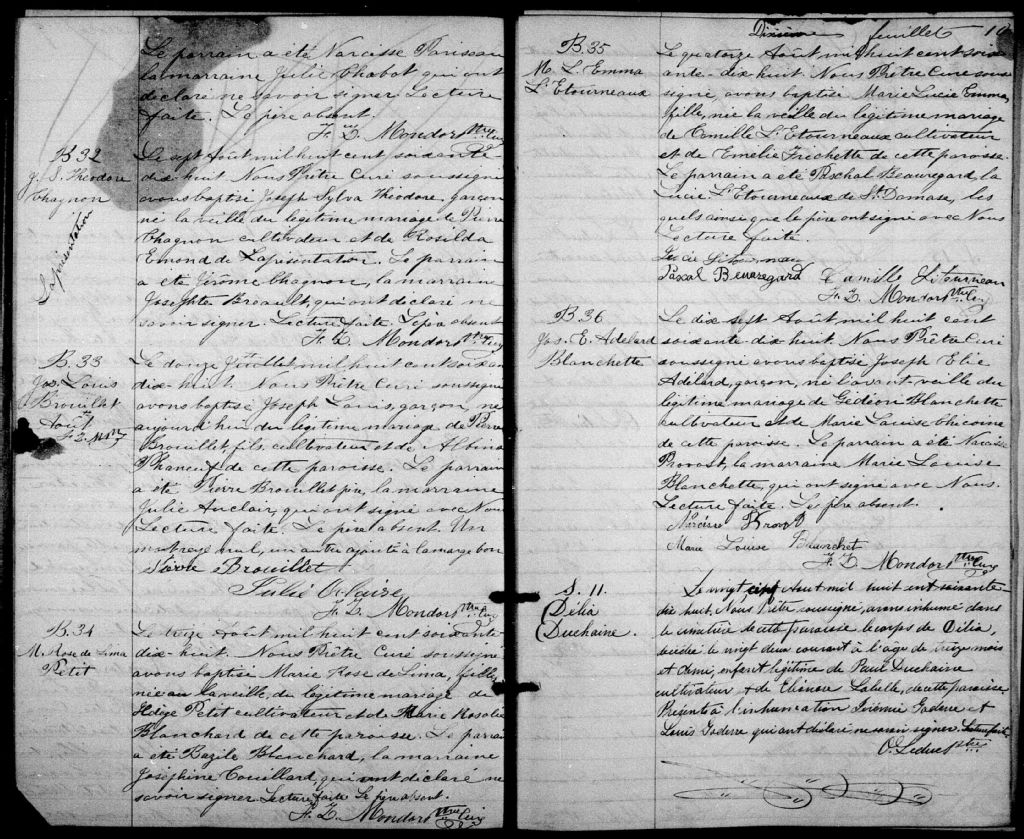 Le parrain a été Narcisse Pariseau
la marraine Julie Chabot qui ont
déclaré ne savoir signer. Lecture
faite. Le père absent.
F. Z. Mondor Ptre Curé
B. 32
J. S. Theodore
Chagnon
Laprésentation
Le sept Août mil huit cent soixante
dix-huit Nous Prêtre Curé soussigné
avons baptisé Joseph Sylva Théodore, garçon
né la veille du légitime mariage de Pierre
Chagnon cultivateur et de Rosilda
Emond de Laprésentation. Le parrain
a été Jérôme Chagnon, la marraine
Josephte Breault, qui ont déclaré ne
savoir signer. Lecture faite. Le père absent
F. Z. Mondor Ptre Curé
B. 33
Jos. Louis
Brouillet
Août
F. Z. M.
Le douze Juillet mil huit cent soixan
dix-huit. Nous Prêtre Curé soussigné
avons baptisé Joseph Louis, garçon, né
aujourd'hui du légitime mariage de Pierre
Brouillet, fils, cultivateur et de Albina
Phaneuf de cette paroisse. Le parrain
a été Pierre Brouillet père, la marraine
Julie Auclair, qui ont signé avec Nous
Lecture faite. Le père absent. Un
mot rayé nul, un autre ajouté à la marge bon
Pierre Brouillet
Julie
F. Z. Mondor Ptre Curé
B. 34
M. Rose de Lima
Petit
Le treize Août mil huit cent soixante
dix-huit. Nous Prêtre Curé soussigné
avons baptisé Marie Rose de Lima, fille,
née la veille, du légitime mariage de
Petit cultivateur et de Marie Rosalie
Blanchard de cette paroisse. Le parrain
a été Bazile Blanchard, la marraine
Joséphine Couillard, qui ont déclaré ne
savoir signer Lecture faite Le père absent.
F. Z. Mondor Ptre Curé
Dixieme feuillet 10
B. 35
M. L. Emma
L'Etourneaux
Le quatorze Août mil huit cent soix
ante-dix huit. Nous Prêtre Curé sous
signé avons baptisé Marie Lucie Emma,
fille, née la veille du légitime mariage
de Camille L'Etourneaux cultivateur
et de Emélie Frichette de cette paroisse.
Le parrain a été Paschal Beauregard, la
Lucie L'Etourneaux de St. Damase, les
quels ainsi que le père ont signé avec Nous
Lecture faite.
Lucie
Paxal Beauregard Camille Létourneau
F. Z. Mondor Ptre Curé
B. 36
Jos. E. Adelard
Blanchette
Le dix sept Août mil huit cent
soixante-dix huit. Nous Prêtre Curé
soussigné avons baptisé Joseph Elie
Adélard, garçon, né l'avant-veille du
légitime mariage de Gédéon Blanchette
cultivateur et de Marie Louise
de cette paroisse. Le parrain a été Narcisse
Provost, la marraine Marie Louise
Blanchette, qui ont signé avec Nous.
Lecture faite. Le père absent.
Narcisse Provot
Marie Louise Blanchet
F. Z. Mondor Ptre Curé
S. 11.
Délia
Duchaine.
Le vingt cinq Aout mil huit cent soixante
dix huit, Nous Prêtre soussigné, avons inhumé dans
le cimetière de cette paroisse le corps de Délia,
décédée le vingt deux courant à l'age de treize mois
et demi, enfant légitime de Paul Duchaine
cultivateur & de Labelle, de cette paroisse
Présents à l'inhumation Jérémie et
Louis qui ont déclaré ne savoir signer. Lecture faite
O. Leduc Ptre